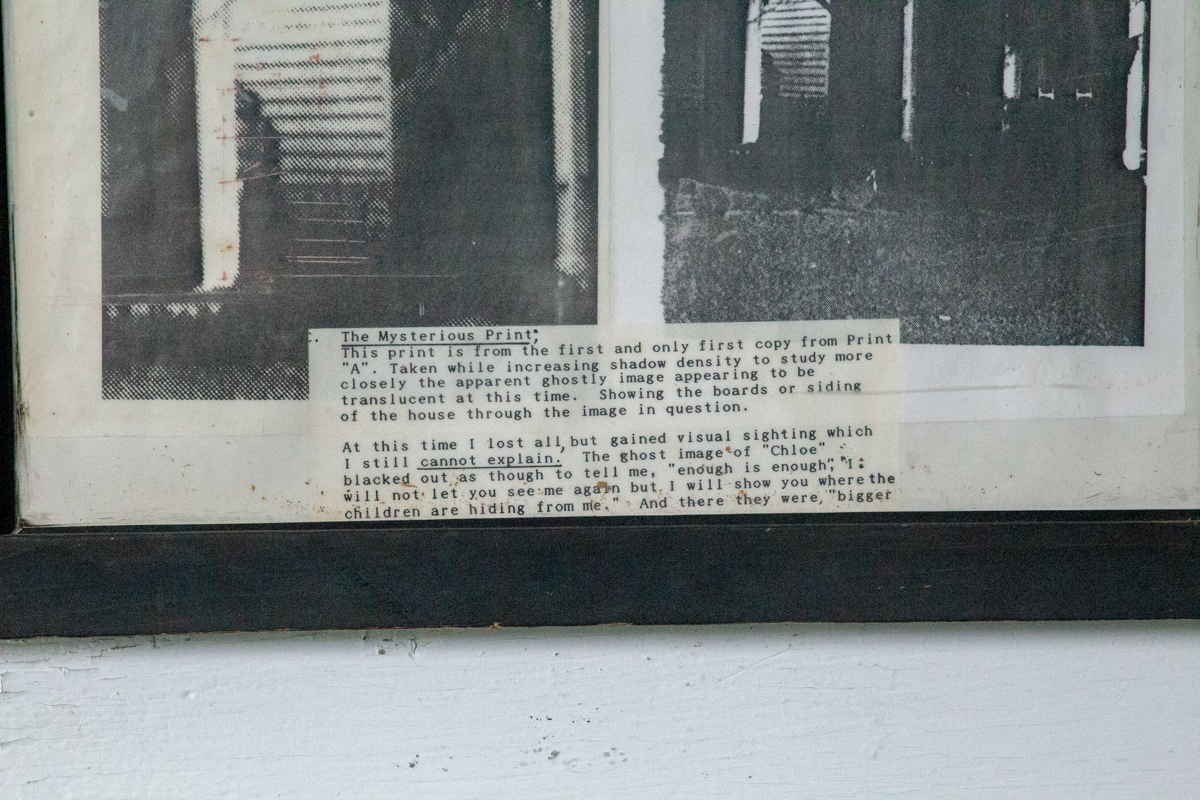 The Mysterious Print;
This print is from the first and only first copy from Print
"A". Taken while increasing shadow density to study more
closely the apparent ghostly image appearing to be
translucent at this time. Showing the boards or siding
of the house through the image in question.
At this time I lost all, but gained visual sighting which
I still cannot explain. The ghost image of "Chloe"
blacked out as though to tell me, "enough is enough", "I
will not let you see me again but I will show you where the
children are hiding from me." And there they were, "bigger